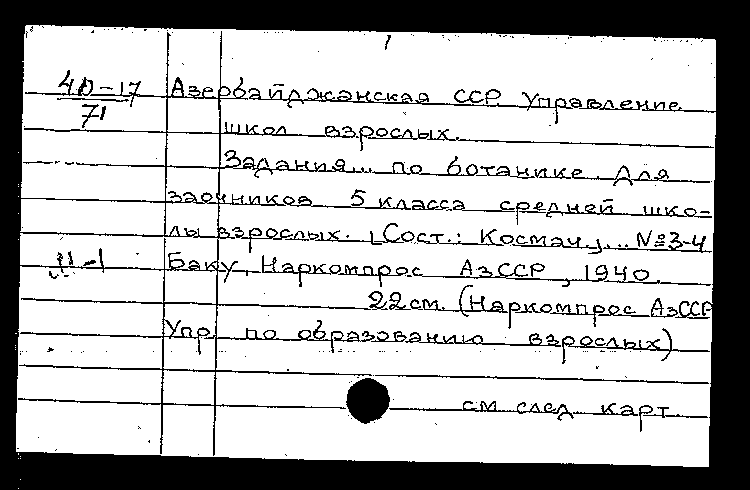 40-17
71
Азербайджанская ССР Управление
школ взрослых.
Задания... по ботанике. Для
заочников 5 класса средней шко-
лы взрослых. [Сост.: Космач.]... №3-4
Баку, Наркомпрос АзССР, 1940.
22см. (Наркомпрос АзССР
Упр. по образованию взрослых)
см. след. карт.